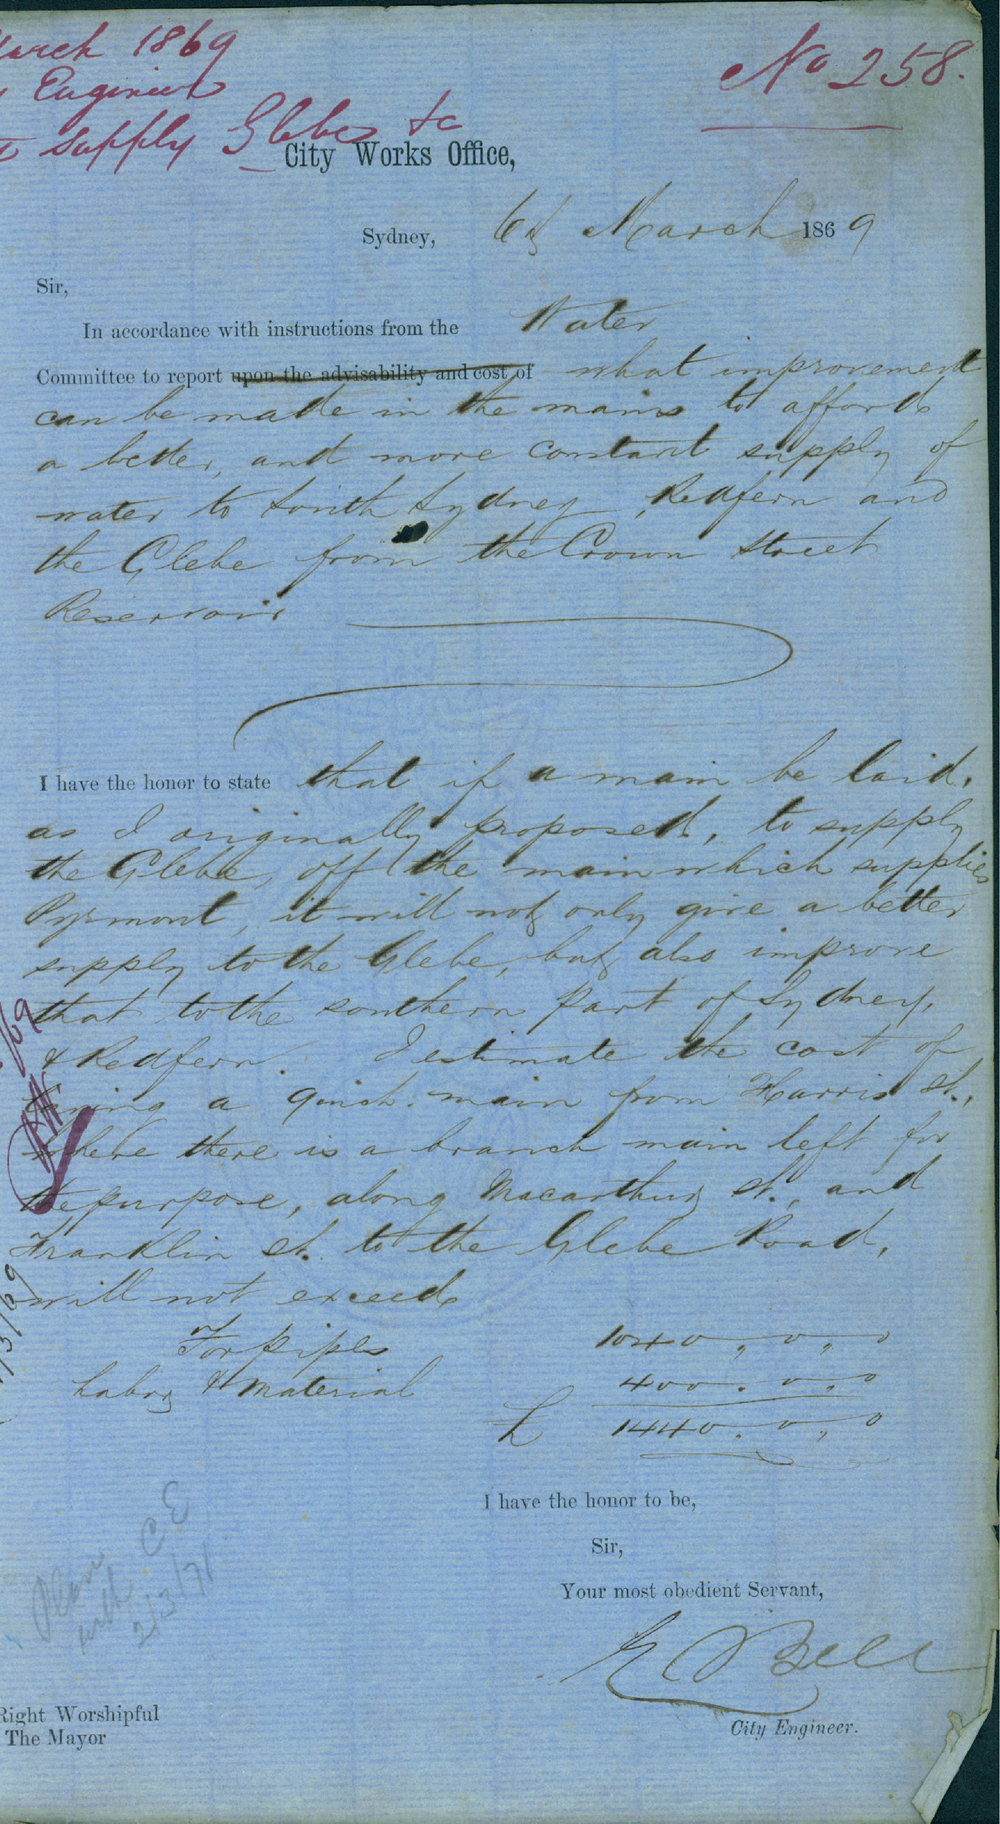 March 1869
No 258.
Engineer
supply Glebe &c
City Works Office,
Sydney, 6th March 1869
Sir,
In accordance with instructions from the Water
Committee to report upon the advisability and cost of what improvement
can be made in the mains to afford
a better, and more constant supply of
water to South Sydney, Redfern and
the Glebe from the Crown Street
Reservoir
I have the honor to state that if a main be laid,
as I originally proposed, to supply
the Glebe, off the main which supplies
Pyrmont, it will not only give a better
supply to the Glebe, but also improve
that to the southern part of Sydney,
& Redfern. I estimate the cost of
laying a 9 inch main from Harris St.,
where there is a branch main left for
the purpose, along Macarthur St., and
Franklin St. to the Glebe Road,
will not exceed
For pipes 1040 , 0 , 0
Labor & Material 400 . 0 . 0
£ 1440 . 0 , 0
I have the honor to be,
Sir,
Your most obedient Servant,
E Bell
City Engineer.
Plan
with C E
2/3/71
Right Worshipful
The Mayor